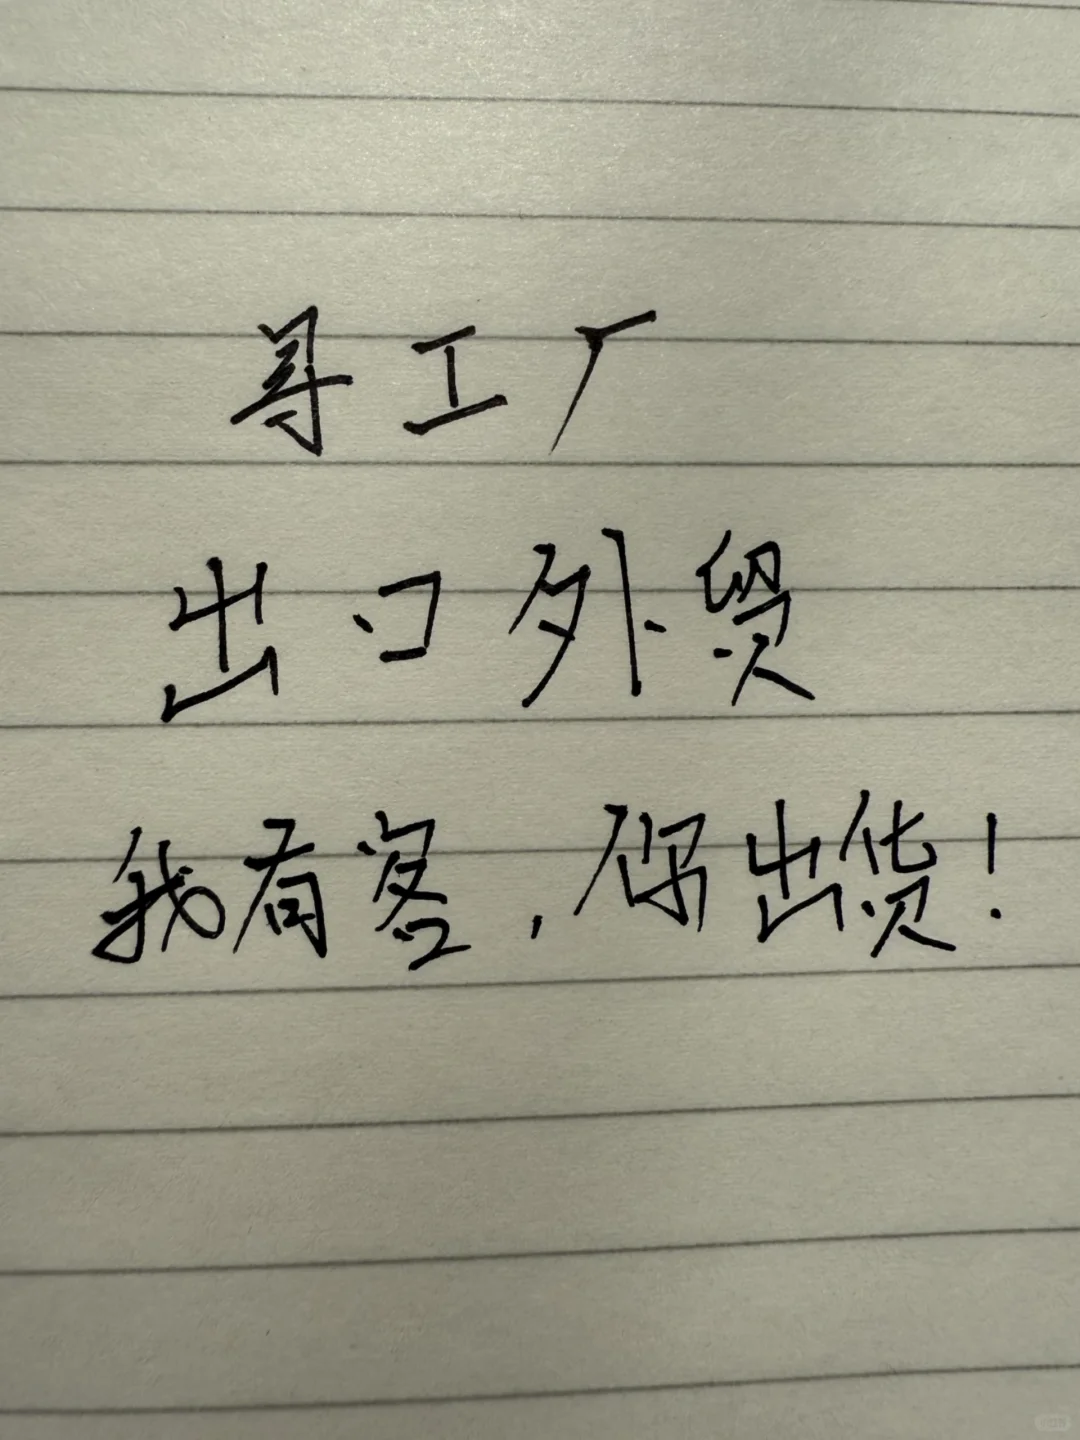 寻工厂
出口外贸
我有客，你出货！